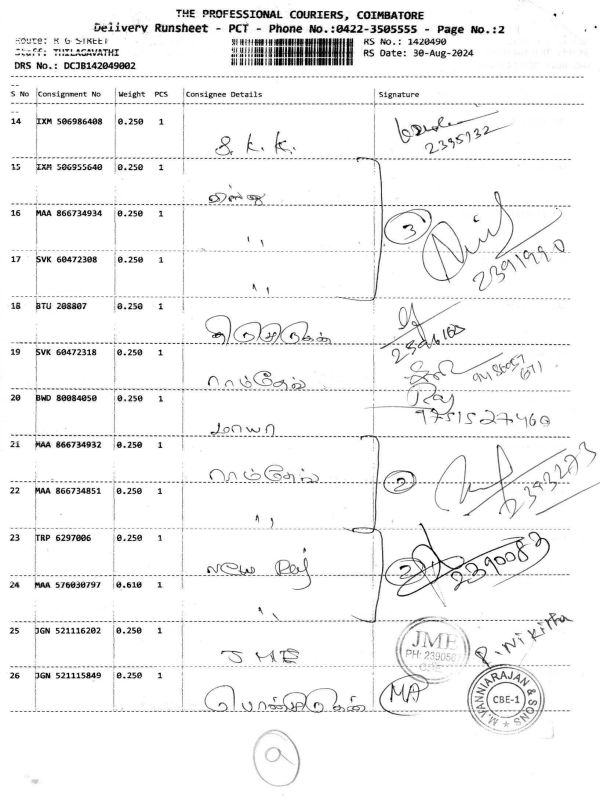 THE PROFESSIONAL COURIERS, COIMBATORE
Delivery Runsheet - PCT - Phone No.:0422-3505555 - Page No.:2
Route: R G STREET
RS No.: 1420490
Staff: THILAGAVATHI
RS Date: 30-Aug-2024
DRS No.: DCJB142049002
S No Consignment No Weight PCS Consignee Details Signature
14 IXM 506986408 0.250 1
S. K. K. 2395132
15 IXM 506955640 0.250 1
16 MAA 866734934 0.250 1
" 3
17 SVK 60472308 0.250 1
" 2391990
18 BTU 208807 0.250 1
19 SVK 60472318 0.250 1
ராம்தேவ்
20 BWD 80084050 0.250 1
Raj
மாயா 9751527460
21 MAA 866734932 0.250 1
ராம்தேவ் 2
22 MAA 866734851 0.250 1
" 2393273
23 TRP 6297006 0.250 1
New Raj 2 2390083
24 MAA 576030797 0.610 1
"
25 JGN 521116202 0.250 1
JME JME
P. Nikitha
26 JGN 521115849 0.250 1
MA
M.VANNIARAJAN & SONS
CBE-1
9